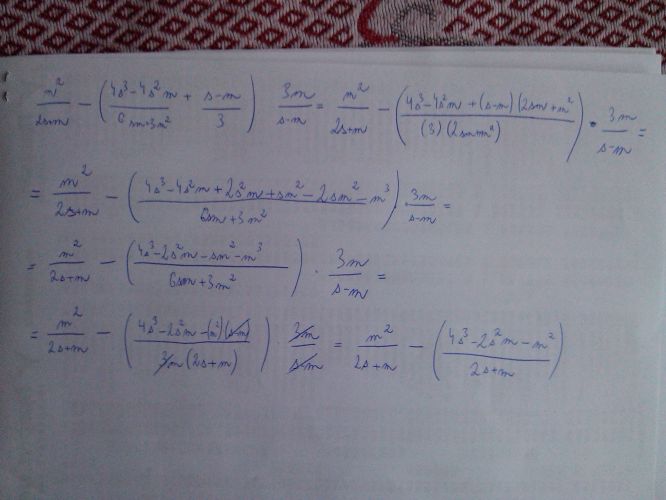 m²/(2s+m) − ( (4s³−4s²m)/(6sm+3m²) + (s−m)/3 ) 3m/(s−m) = m²/(2s+m) − ( (4s³−4s²m+(s−m)(2sm+m²)/((3)(2sm+m²)) ) · 3m/(s−m) =
= m²/(2s+m) − ( (4s³−4s²m+2s²m+sm²−2sm²−m³)/(6sm+3m²) ) · 3m/(s−m) =
= m²/(2s+m) − ( (4s³−2s²m−sm²−m³)/(6sm+3m²) ) · 3m/(s−m) =
= m²/(2s+m) − ( (4s³−2s²m−(m²)(s−m))/(3m(2s+m)) ) 3m/(s−m) = m²/(2s+m) − ( (4s³−2s²m−m²)/(2s+m) )